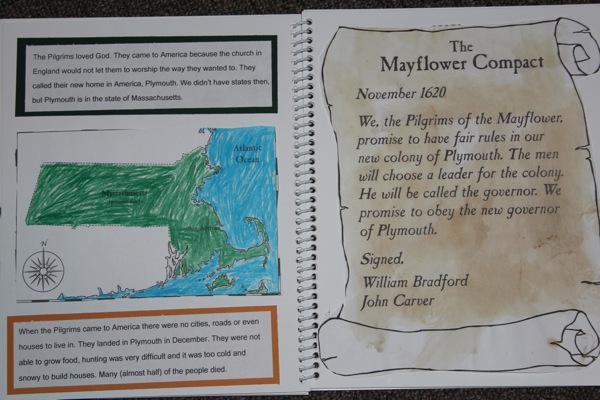 The Pilgrims loved God. They came to America because the church in
England would not let them to worship the way they wanted to. They
called their new home in America, Plymouth. We didn't have states then,
but Plymouth is in the state of Massachusetts.
Atlantic
Ocean
Massachusetts
N
When the Pilgrims came to America there were no cities, roads or even
houses to live in. They landed in Plymouth in December. They were not
able to grow food, hunting was very difficult and it was too cold and
snowy to build houses. Many (almost half) of the people died.
The
Mayflower Compact
November 1620
We, the Pilgrims of the Mayflower,
promise to have fair rules in our
new colony of Plymouth. The men
will choose a leader for the colony.
He will be called the governor. We
promise to obey the new governor
of Plymouth.
Signed,
William Bradford
John Carver